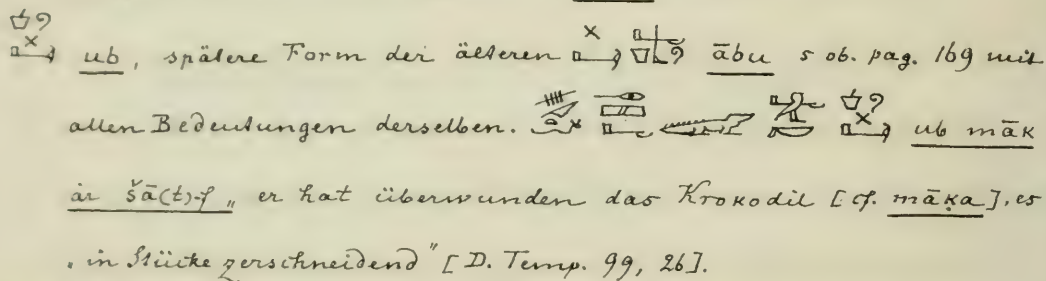 ub, spätere Form der älteren ābu s ob. pag. 169 mit
allen Bedeutungen derselben. ub māk
ȧr šā(t)-f „er hat überwunden das Krokodil [cf. māḳa], es
„in Stücke zerschneidend" [D. Temp. 99, 26].